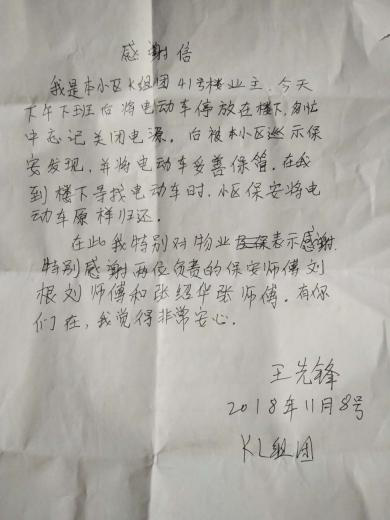 感谢信
我是本小区K组团41号楼业主,今天
下午下班后将电动车停放在楼下,匆忙
中忘记关闭电源。后被本小区巡示保
安发现,并将电动车妥善保管。在我
到楼下寻找电动车时,小区保安将电
动车原样归还。
在此我特别对物业表示感谢
特别感谢两位负责的保安师傅刘
根刘师傅和张绍华张师傅。有你
们在,我觉得非常安心。
王先锋
2018年11月8号
KL组团